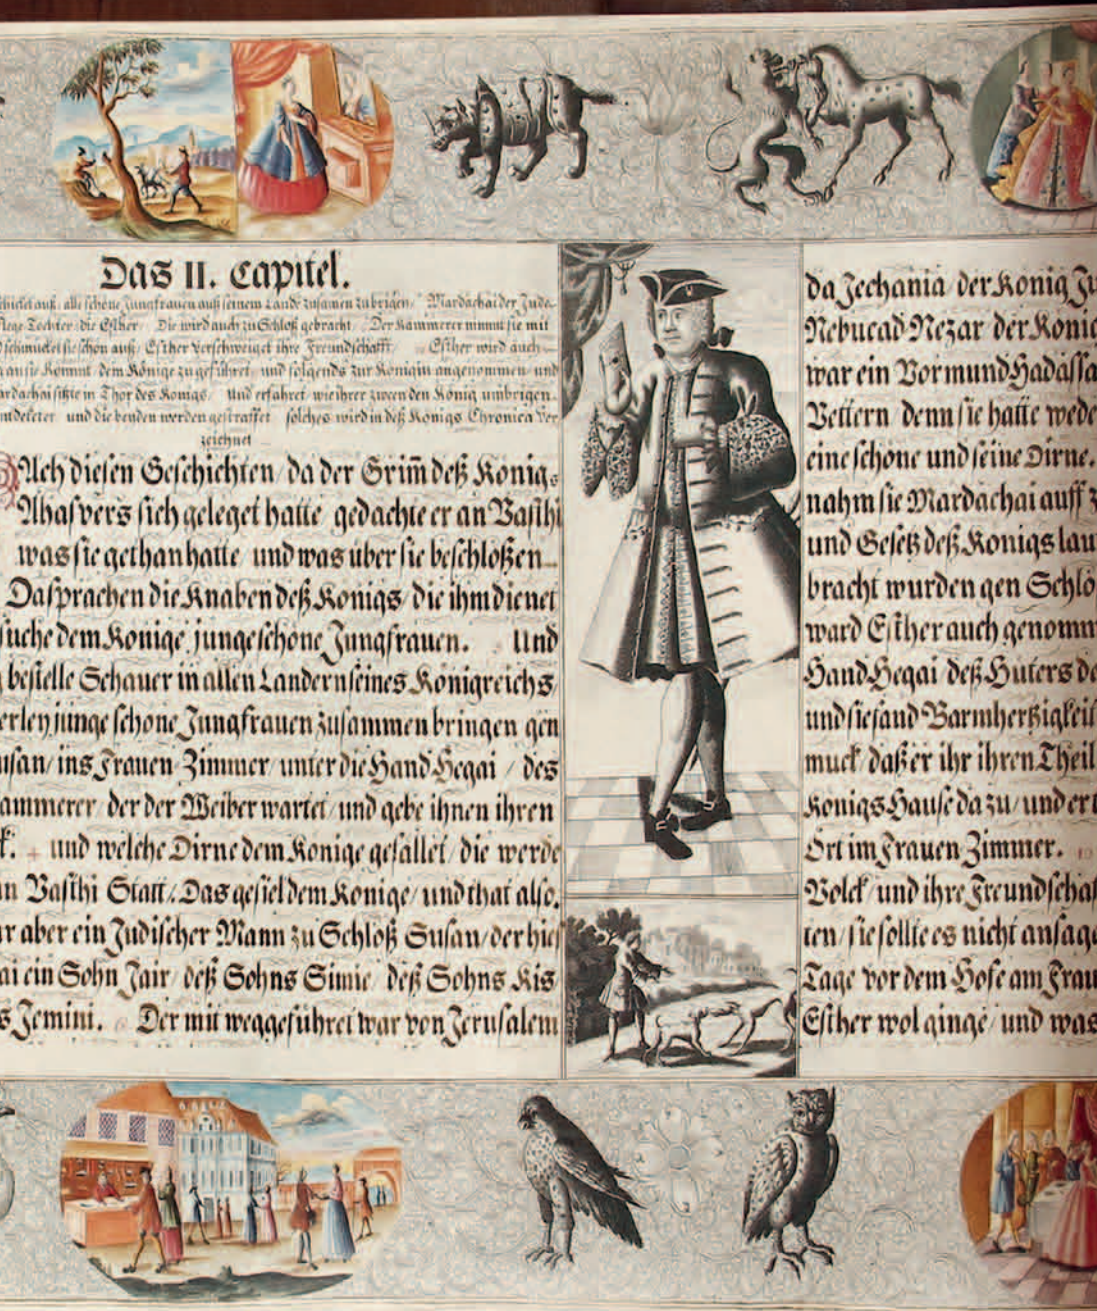 Das II. Capitel.
schicket auß, alle schöne Jungfrauen auß seinem Lande zusamen zubrigen, Mardachai der Jude
Pflege Tochter, die Esther, Die wird auch zu Schloß gebracht, Der Kammerer nimmt sie mit
schmücket sie schön auß, Esther verschweiget ihre Freundschafft, Esther wird auch
an sie kommt dem Könige zugeführet, und folgends zur Königin angenommen, und
Mardachai sitzte in Thor des Königs, Und erfahret wie ihrer zween den König umbrigen.
und die beyden werden gestraffet solches wird in deß Königs Chronica ver
zeichnet
Nach diesen Geschichten, da der Grim̅ deß Königs
Ahasvers sich geleget hatte, gedachte er an Vasthi
was sie gethan hatte, und was über sie beschloßen
Da sprachen die Knaben deß Königs, die ihm dienet
suche dem Könige junge schöne Jungfrauen. Und
bestelle Schauer in allen Landern seines Königreichs,
erley junge schöne Jungfrauen zusammen bringen gen
usan, ins Frauen Zimmer, unter die Hand Hegai, des
ammerer, der der Weiber wartet, und gebe ihnen ihren
k. und welche Dirne dem Könige gefället, die werde
n Vasthi Statt, Das gefiel dem Könige, und that also.
r aber ein Jüdischer Mann zu Schloß Susan, der hies
ai ein Sohn Jair, deß Sohns Simie, deß Sohns Kis
s Jemini. Der mit weggeführet war von Jerusalem
da Jechania der König Ju
Nebucad Nezar der König
war ein Vormund Hadassa
Vettern, denn sie hatte wede
eine schöne und feine Dirne.
nahm sie Mardachai auff z
und Gesetz deß Königs lau
bracht wurden gen Schlo
ward Esther auch genomm
Hand Hegai, deß Hüters de
und sie fand Barmhertzigkeit
muck, daß er ihr ihren Theil
Königs Hause dazu, und er t
Ort im Frauen Zimmer.
Volck, und ihre Freundschaf
ten, sie sollte es nicht ansage
Tage vor dem Hofe am Frau
Esther wol ginge, und was